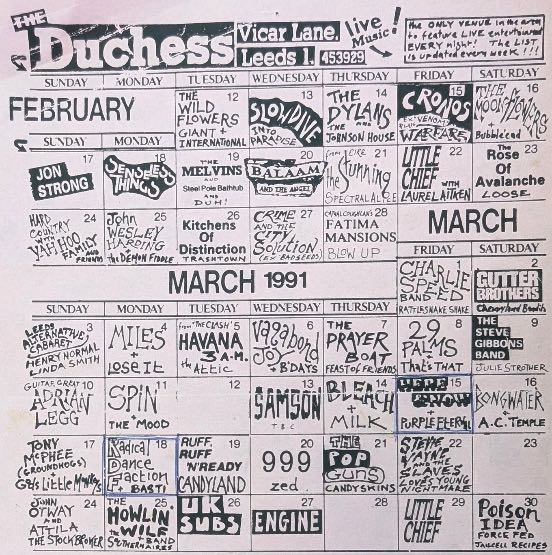 THE
Duchess
Vicar Lane,
Leeds 1. 453929
live
Music!
the ONLY VENUE in the area
to feature LIVE entertainment
EVERY night! The LIST
is updated every week!!!
SUNDAY MONDAY TUESDAY WEDNESDAY THURSDAY FRIDAY SATURDAY
FEBRUARY
12
THE
WILD
FLOWERS
GIANT +
INTERNATIONAL
13
SLOWDIVE
INTO
PARADISE
14
THE
DYLANS
THE AND
JOHNSON HOUSE
15
CRONOS
WARFARE
16
THE
MOONFLOWERS
+
Bubblelead
SUNDAY MONDAY
17
JON
STRONG
18
SENSELESS
THINGS
19
THE
MELVINS
Steel Pole Bathtub
AND
DUH!
20
BALAAM
AND THE ANGEL
21
from EIRE
The Stunning
22
LITTLE
CHIEF
WITH
LAUREL AITKEN
23
The
Rose Of
Avalanche
LOOSE
24
HARD
COUNTRY
WITH
YAHOO
FAMILY
AND
FRIENDS
25
John
WESLEY
HARDING
THE DEMON FIDDLE
26
Kitchens
Of
Distinction
TRASHTOWN
27
CRIME
AND THE
CITY
Solution
(EX BADSEEDS)
28
CATHAL COUGHLAN'S
FATIMA
MANSIONS
BLOW UP
MARCH
FRIDAY SATURDAY
1
CHARLIE
SPEED
BAND
RATTLESNAKE SHAKE
2
GUTTER
BROTHERS
MARCH 1991
SUNDAY MONDAY TUESDAY WEDNESDAY THURSDAY
3
LEEDS
ALTERNATIVE
CABARET
HENRY NORMAL
LINDA SMITH
4
MILES
+
Lose It
5
from "THE CLASH"
HAVANA
3 A.M.
the Attic
6
Vagabond
Joy
+ B'DAYS
7
THE
PRAYER
BOAT
FEAST OF FRIENDS
8
29
PALMS
+
That's THAT
9
THE
STEVE
GIBBONS
BAND
JULIE STROTHER
10
GUITAR GREAT
ADRIAN
LEGG
11
SPIN
+
THE MOOD
12
13
SAMSON
T.B.C
14
BLEACH
+
MILK
15
HERE
& NOW
+
PURPLE ETERNAL
16
BONGWATER
+
A.C. TEMPLE
17
TONY
McPHEE
(GROUNDHOGS)
+
18
Radical
Dance
Faction
+ BASTI
19
RUFF,
RUFF
'N'READY
CANDYLAND
20
999
zed
21
THE
POP
GUNS
CANDYSKINS
22
STEVIE
WAYNE
AND THE
SLAVES
LOVES YOUNG
NIGHTMARE
23
24
JOHN
OTWAY
AND
ATTILA
THE STOCKBROKER
25
THE
HOWLIN'
WILF
26
UK
SUBS
27
ENGINE
28
29
LITTLE
CHIEF
30
Poison
IDEA
FORCE FED
JAILCELL RECIPES